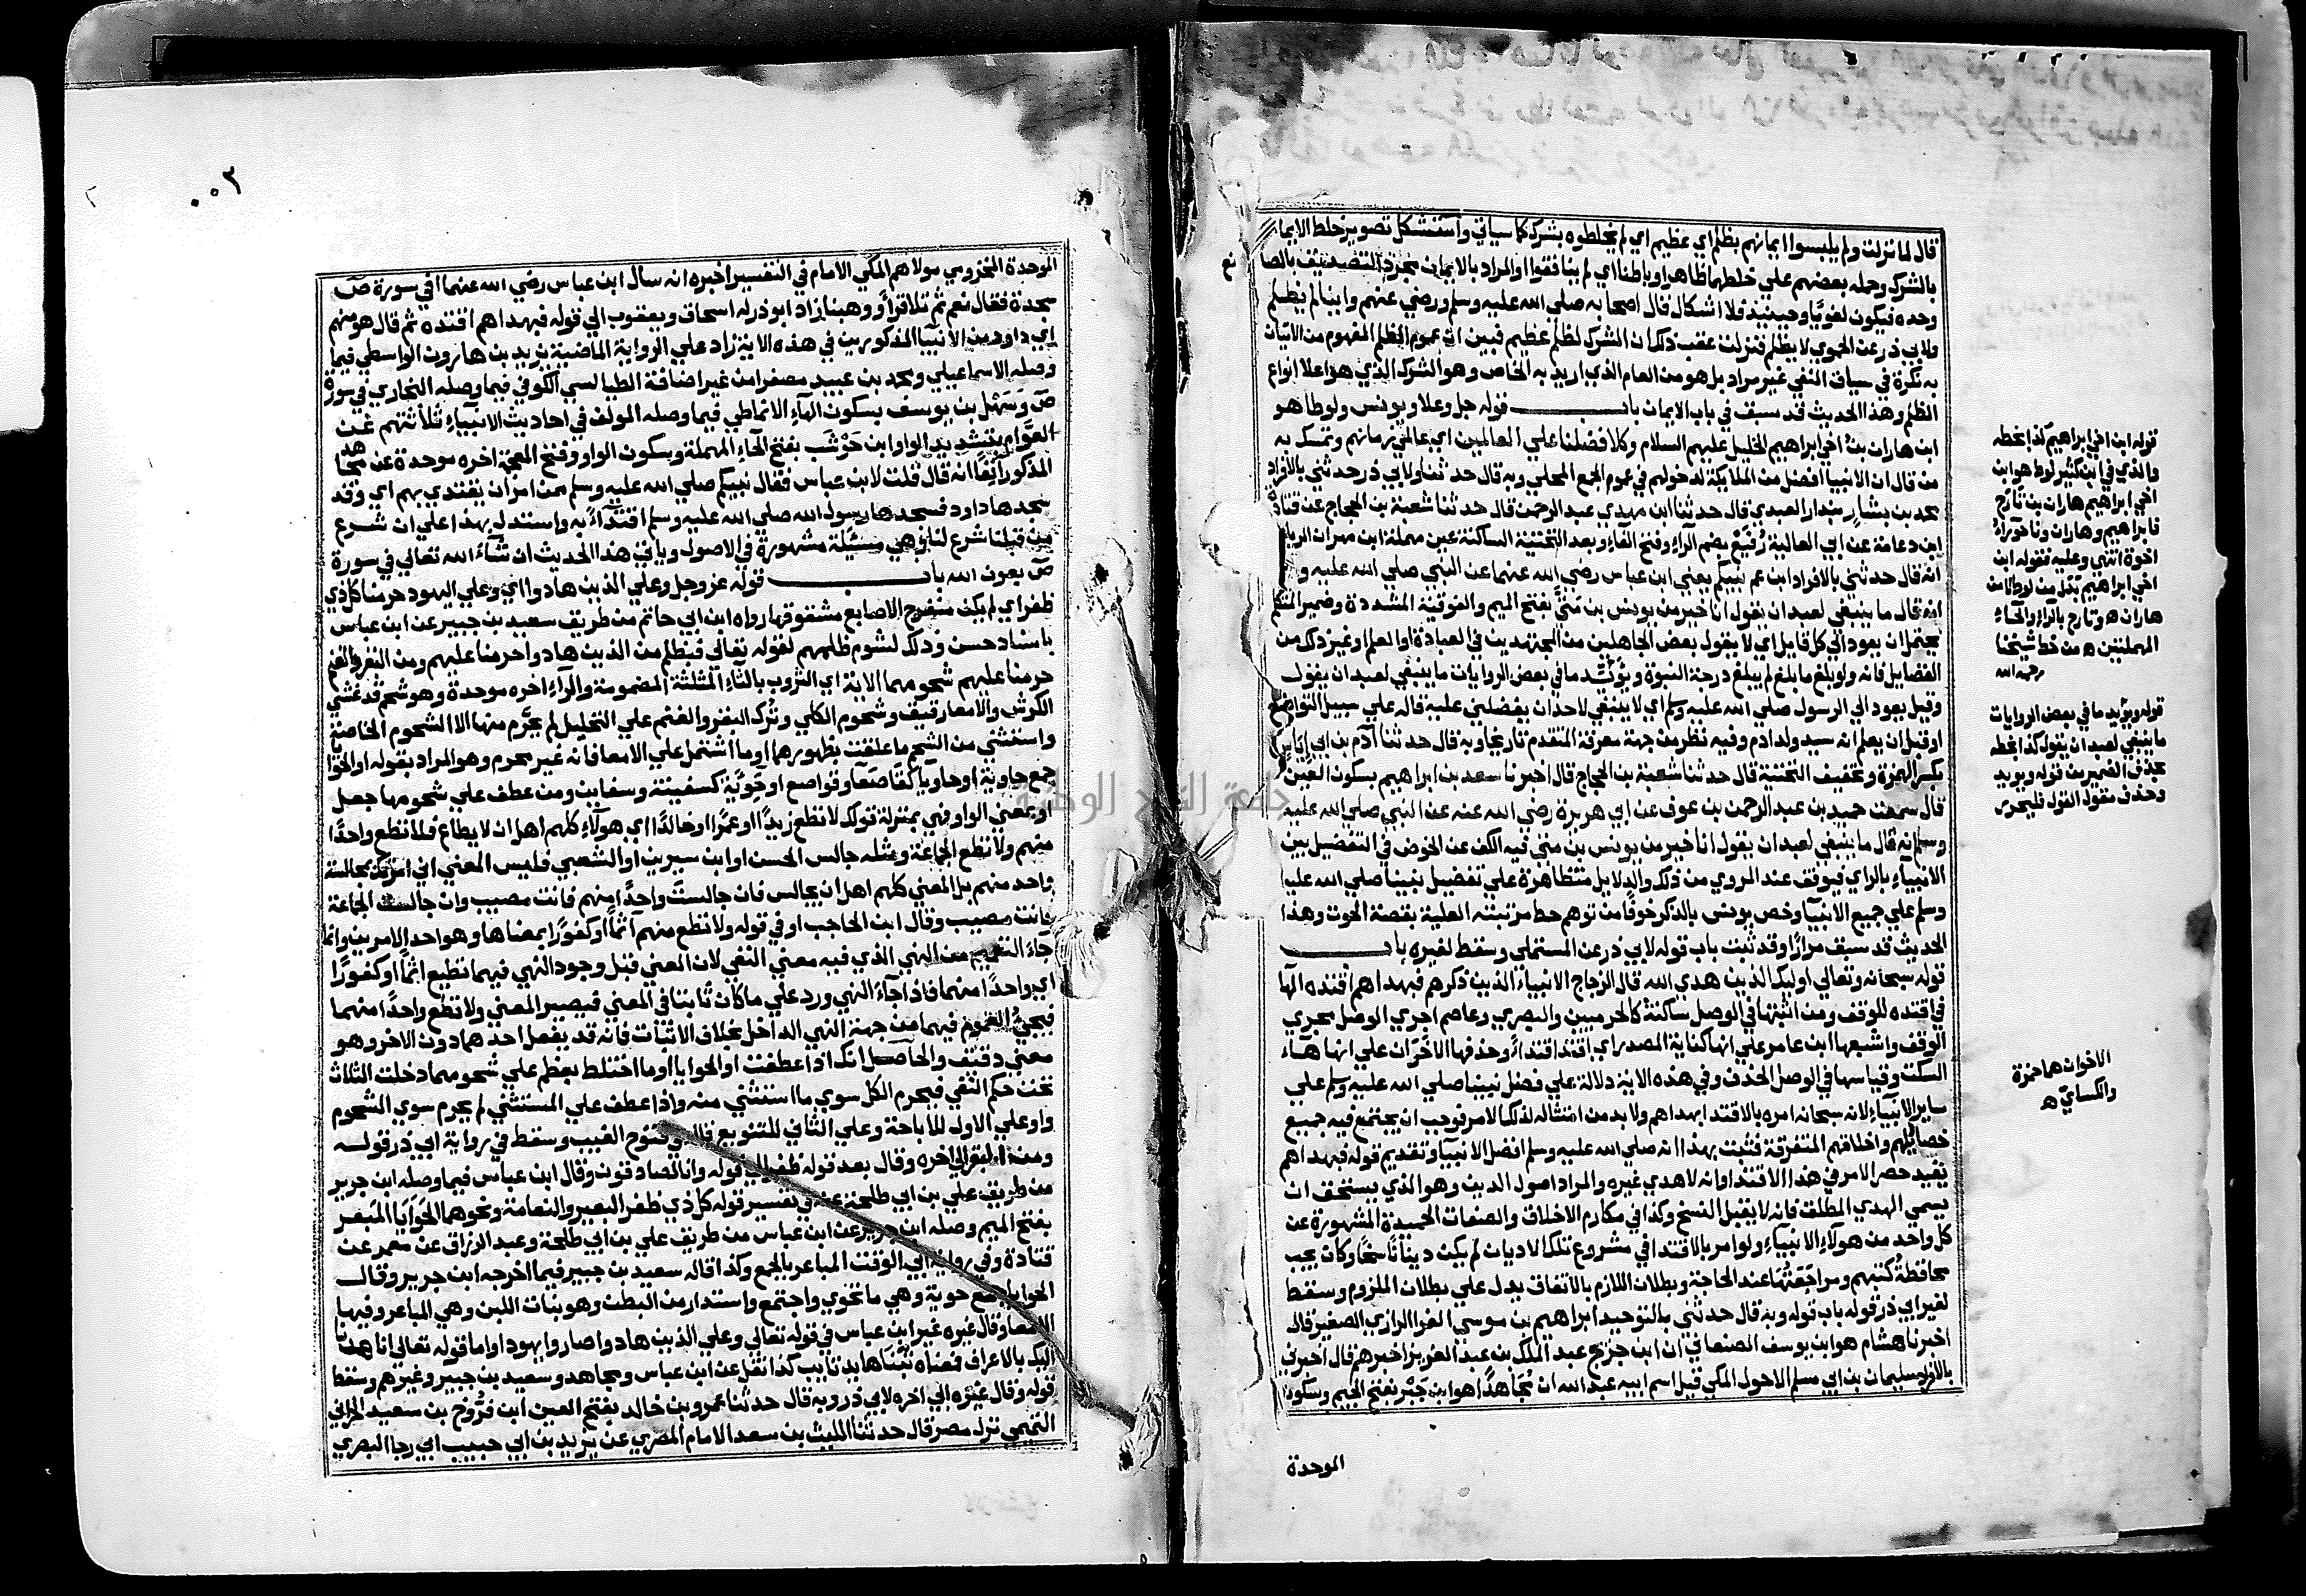 قال لما نزلت ولم يلبسوا ايمانهم بظلم اي عظيم اي لم يخلطوه بشرك كما سياتي واستشكل تصوير خلط الايما
بالشرك وحمله بعضهم علي خلطهما ظاهرا وباطنا اي لم ينافقوا او المراد بالايمان مجرد التصديق بالصا
وحده فيكون لغويا وحينيذ فلا اشكال قال اصحابه صلي الله عليه وسلم ورضي عنهم واينا لم يظلم
ولابي ذر عن الحموي لا يظلم فنزلت عقب ذلك ان الشرك لظلم عظيم فبين ان عموم الظلم المفهوم من الاتيان
به نكرة في سياق النفي غير مراد بل هو من العام الذي اريد به الخاص وهو الشرك الذي هو اعلا انواع
الظلم وهذا الحديث قد سبق في باب الايمان باب قوله جل وعلا ويونس ولوطا هو
ابن هاران بن اخي ابراهيم الخليل عليهم السلام وكلا فضلنا علي العالمين اي عالمي زمانهم وتمسك به
من قال ان الانبيا افضل من الملايكة لدخولهم في عموم الجمع المحلي وبه قال حدثنا ولابي ذر حدثني بالافراد
محمد بن بشار بندار العبدي قال حدثنا ابن مهدي عبد الرحمن قال حدثنا شعبة بن الحجاج عن قتادة
ابن دعامة عن ابي العالية رفيع بضم الراء وفتح الفاء وبعد التحتية الساكنة عين مهملة ابن مهران الريا
انه قال حدثني بالافراد ابن عم نبيكم يعني ابن عباس رضي الله عنهما عن النبي صلي الله عليه و
انه قال ما ينبغي لعبد ان يقول انا خير من يونس بن متي بفتح الميم والفوقية المشددة وضمير المتكلم
يحتمل ان يعود الي كل قايل اي لا يقول بعض الجاهلين من المجتهدين في العبادة او العلم او غير ذلك من
الفضايل فانه ولو بلغ ما بلغ لم يبلغ درجة النبوة ويؤيد ما في بعض الروايات ما ينبغي لعبد ان يقول
وقيل يعود الي الرسول صلي الله عليه وسلم اي لا ينبغي لاحد ان يفضلني عليه قاله علي سبيل التواضع
او قبل ان يعلم انه سيد ولد ادم وفيه نظر من جهة معرفة المتقدم تاريخا وبه قال حدثنا آدم بن ابي اياس
بكسر الهمزة وتخفيف التحتية قال حدثنا شعبة بن الحجاج قال اخبرنا سعد بن ابراهيم بسكون العين
قال سمعت حميد بن عبد الرحمن بن عوف عن ابي هريرة رضي الله عنه عن النبي صلي الله عليه
وسلم انه قال ما ينبغي لعبد ان يقول انا خير من يونس بن متي فيه الكف عن الخوض في التفضيل بين
الانبياء بالراي فيوقف عند المروي من ذلك والدلايل متظاهرة علي تفضيل نبينا صلي الله عليه
وسلم علي جميع الانبيا وخص يونس بالذكر خوفا من توهم حط مرتبته العلية بقصة الحوت وهذا
الحديث قد سبق مرارا وقد ثبت باب قوله لابي ذر عن المستملي وسقط لغيره باب
قوله سبحانه وتعالي اوليك الذين هدي الله قال الزجاج الانبياء الذين ذكرهم فبهداهم اقتده الها
في اقتده للوقف ومن اثبتها في الوصل ساكنة كالحرميين والبصري وعاصم اجري الوصل مجري
الوقف واشبعها ابن عامر علي انها كناية المصدر اي اقتد اقتداء وحذفها الاخوان علي انها هاء
السكت وقياسها في الوصل الحذف وفي هذه الاية دلالة علي فضل نبينا صلي الله عليه وسلم علي
ساير الانبياء لانه سبحانه امره بالاقتدا بهداهم ولا بد من امتثاله لذلك الامر فوجب ان يجتمع فيه جميع
خصايلهم واخلاقهم المتفرقة فثبت بهذا انه صلي الله عليه وسلم افضل الانبيا وتقديم قوله فبهداهم
يفيد حصر الامر في هذا الاقتدا وانه لا هدي غيره والمراد اصول الدين وهو الذي يستحق ان
يسمي الهدي المطلق فانه لا يقبل النسخ وكذا في مكارم الاخلاق والصفات الحميدة المشهورة عن
كل واحد من هولاء الانبياء ولو امر بالاقتدا في مشروع تلك الاديان لم يكن دينا ناسخا وكان يجب
محافظة كتبهم ومراجعتها عند الحاجة وبطلان اللازم بالاتفاق يدل علي بطلان الملزوم وسقط
لغير ابي ذر قوله باب قوله وبه قال حدثني بالتوحيد ابراهيم بن موسي الفرا الرازي الصغير قال
اخبرنا هشام هو ابن يوسف الصنعاني ان ابن جريج عبد الملك بن عبد العزيز اخبرهم قال اخبرني
بالافراد سليمان بن ابي مسلم الاحول المكي قيل اسم ابيه عبد الله ان مجاهدا هو ابن جبر بفتح الجيم وسكون
الموحدة
قوله ابن اخي ابراهيم كذا بخطه
والذي في ابن كثير لوط هو ابن
اخي ابراهيم هاران بن تارح
فابراهيم وهاران وناحور
اخوة انتهي وعليه فقوله ابن
اخي ابراهيم بدل من لوط لا من
هاران ه وتارح بالراء والحاء
المهملتين ه من خط شيخنا
رحمه الله
قوله ويؤيد ما في بعض الروايات
ما ينبغي لعبد ان يقول كذا بخطه
بحذف الضمير من قوله ويويد
وحذف مقول القول فليحرر
الاخوان هما حمزة
والكسايي ه
٠٥٣
الموحدة المخزومي مولاهم المكي الامام في التفسير اخبره انه سال ابن عباس رضي الله عنهما افي سورة ص
سجدة فقال نعم ثم تلا قرأ ووهبنا زاد ابو ذر له اسحاق ويعقوب الي قوله فبهداهم اقتده ثم قال هو منهم
اي داود من الانبيا المذكورين في هذه الاية زاد علي الرواية الماضية يزيد بن هارون الواسطي فيما
وصله الاسماعيلي ومحمد بن عبيد مصغرا من غير اضافة الطيالسي الكوفي فيما وصله البخاري في سورة
ص وسهل بن يوسف بسكون الهاء الانماطي فيما وصله المولف في احاديث الانبياء ثلاثتهم عن
العوام بتشديد الواو ابن حوشب بفتح الحاء المهملة وسكون الواو وفتح المعجمة اخره موحدة عن مجاهد
المذكور ايضا انه قال قلت لابن عباس فقال نبيكم صلي الله عليه وسلم ممن امر ان يقتدي بهم اي وقد
سجدها داود فسجدها رسول الله صلي الله عليه وسلم اقتداء به واستدل بهذا علي ان شرع
من قبلنا شرع لنا وهي مسئلة مشهورة في الاصول وياتي هذا الحديث ان شاء الله تعالي في سورة
ص بعون الله باب قوله عز وجل وعلي الذين هادوا اي وعلي اليهود حرمنا كل ذي
ظفر اي لم يكن منفرج الاصابع مشقوقها رواه ابن ابي حاتم من طريق سعيد بن جبير عن ابن عباس
باسناد حسن وذلك لشوم ظلمهم لقوله تعالي فبظلم من الذين هادوا حرمنا عليهم ومن البقر والغنم
حرمنا عليهم شحومهما الاية اي الثروب بالثاء المثلثة المضمومة والراء اخره موحدة وهو شحم قد غشي
الكرش والامعا رقيق وشحوم الكلي وترك البقر والغنم علي التحليل لم يحرم منها الا الشحوم الخاصة
واستثني من الشحم ما علقت بظهورهما او ما اشتمل علي الامعا فانه غير محرم وهو المراد بقوله او الحوايا
جمع حاوية او حاويا كقاصعا وقواصع او حوية كسفينة وسفاين ومن عطف علي شحومها جعل
او بمعني الواو فهي بمنزلة قولك لا تطع زيدا او عمرا او خالدا اي هولاء كلهم اهل ان لا يطاع فلا تطع واحدا
منهم ولا تطع الجماعة ومثله جالس الحسن او ابن سيرين او الشعبي فليس المعني اني امرتك بمجالسة
واحد منهم بل المعني كلهم اهل ان يجالس فان جالست واحدا منهم فانت مصيب وان جالست الجماعة
فانت مصيب وقال ابن الحاجب او في قوله ولا تطع منهم آثما او كفورا بمعناها وهو احد الامرين وانما
جاء التعميم من النهي الذي فيه معني النفي لان المعني قبل وجود النهي فيهما تطيع اثما او كفورا
اي واحدا منهما فاذا جاء النهي ورد علي ما كان ثابتا في المعني فيصير المعني ولا تطع واحدا منهما
فيجيء العموم فيهما من جهة النهي الداخل بخلاف الاثبات فانه قد يفعل احدهما دون الاخر وهو
معني دقيق والحاصل انك اذا عطفت او الحوايا او ما اختلط بعظم علي شحومهما دخلت الثلاث
تحت حكم النفي فيحرم الكل سوي ما استثني منه واذا عطف علي المستثني لم يحرم سوي الشحوم
واو علي الاول للاباحة وعلي الثاني للتنويع قاله في فتوح الغيب وسقط في رواية ابي ذر قوله
ومن البقر الي اخره وقال بعد قوله ظفر الي قوله وانا لصادقون وقال ابن عباس فيما وصله ابن جرير
من طريق علي بن ابي طلحة عنه في تفسير قوله كل ذي ظفر البعير والنعامة ونحوهما الحوايا المبعر
بفتح الميم وصله ابن جرير عن ابن عباس من طريق علي بن ابي طلحة وعبد الرزاق عن معمر عن
قتادة وفي رواية ابي الوقت المباعر بالجمع وكذا قاله سعيد بن جبير فيما اخرجه ابن جرير وقال
الحوايا جمع حوية وهي ما تحوي واجتمع واستدار من البطن وهو بنات اللبن وهي المباعر وفيها
الامعا وقال غيره غير ابن عباس في قوله تعالي وعلي الذين هادوا صاروا يهودا واما قوله تعالي انا هدنا
اليك بالاعراف فمعناه تبنا هايد تايب كذا نقل عن ابن عباس ومجاهد وسعيد بن جبير وغيرهم وسقط
قوله وقال غيره الي اخره لابي ذر وبه قال حدثنا عمرو بن خالد بفتح العين ابن فروخ بن سعيد الحراني
التميمي نزل مصر قال حدثنا الليث بن سعد الامام المصري عن يزيد بن ابي حبيب ابي رجا البصري
جامعة النجاح الوطنية